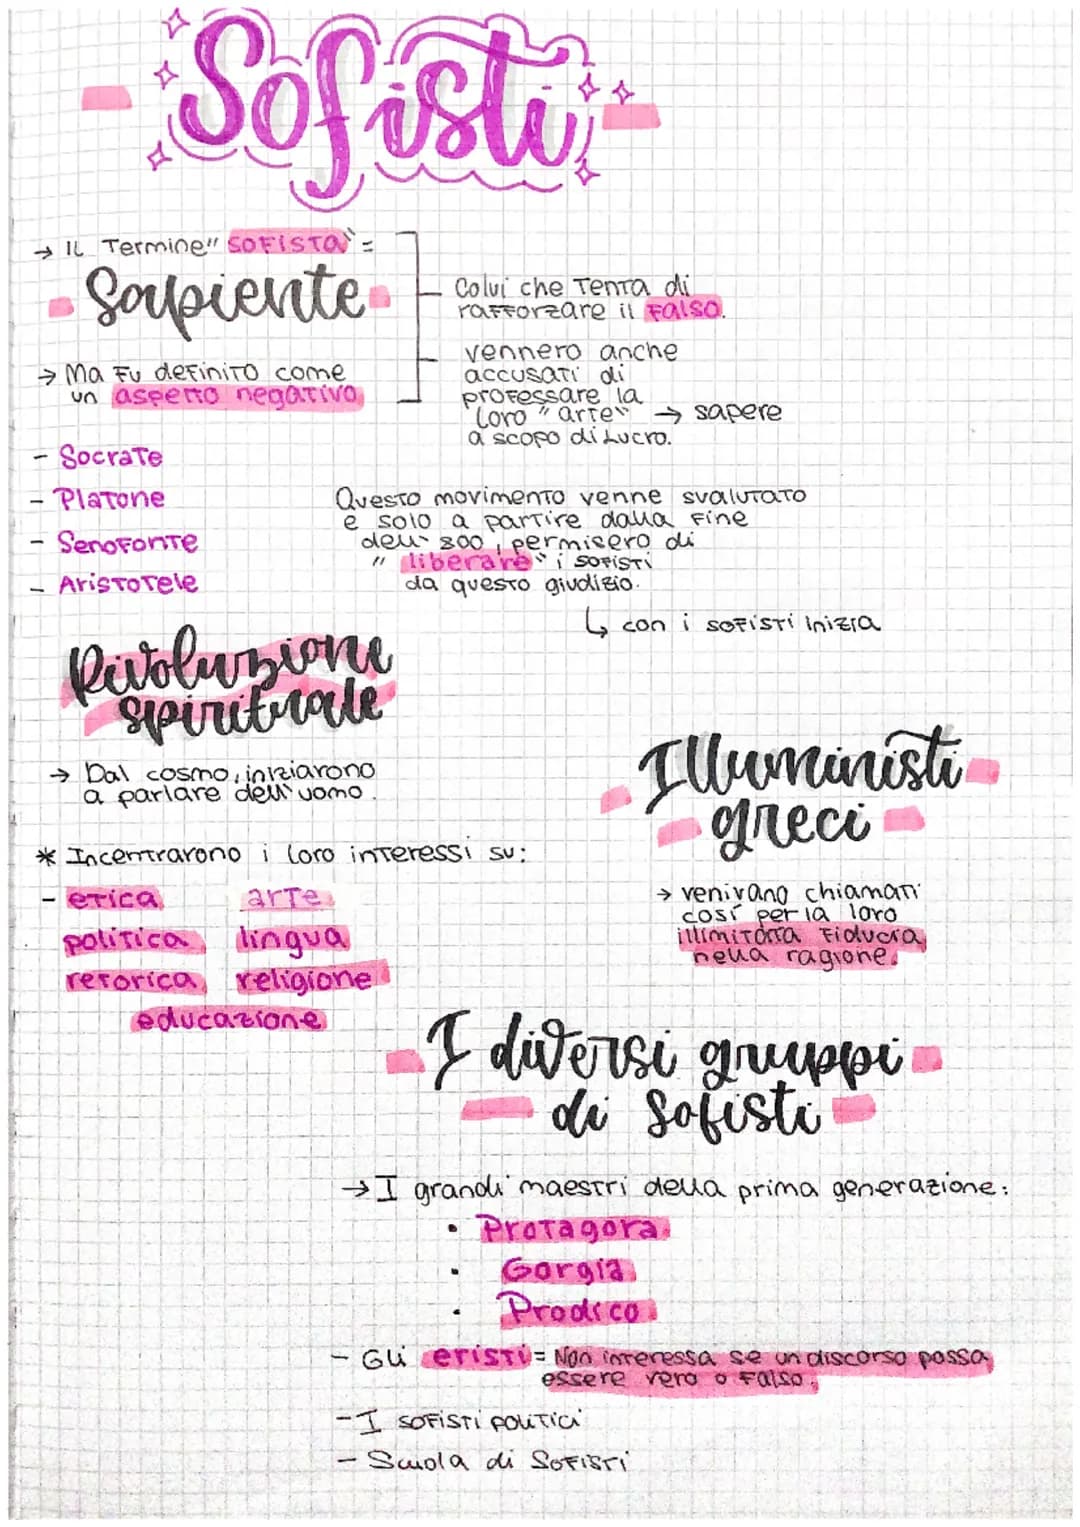 Sofisti
→ Il Termine "SOFISTA" =
Sapiente
Colui che Tenta di
rafforzare il Falso.
→ Ma Fu definito come
un aspetto negativo
vennero anche
accusati di
professare la
loro "arte" → sapere
a scopo di Lucro.
- Socrate
- Platone
- Senofonte
- Aristotele
Questo movimento venne svalutato
e solo a partire dalla Fine
dell'800, permisero di
"liberare" i sofisti
da questo giudizio.
↳ con i sofisti inizia
Rivoluzione
spirituale
→ Dal cosmo, iniziarono
a parlare dell'uomo.
Illuministi
greci
→ venivano chiamati
così per la loro
illimitata Fiducia
nella ragione.
* Incentrarono i loro interessi su:
- etica arte
politica lingua
retorica religione
educazione
I diversi gruppi
di Sofisti
→ I grandi maestri della prima generazione:
• Protagora
• Gorgia
• Prodico
- Gli eristi = Non interessa se un discorso possa
essere vero o Falso.
- I sofisti politici
- Scuola di Sofisti